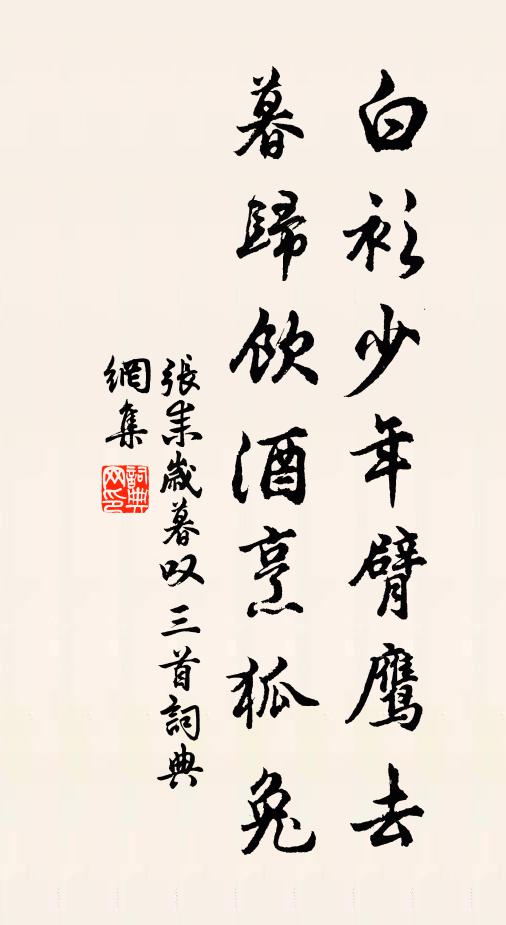 白衫少年臂鷹去
暮歸飲酒烹狐兔
張耒歲暮叹三首詞典
網集
詞典網印